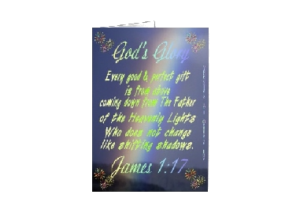 God's Glory
Every good & perfect gift
is from above
coming down from The Father
of the Heavenly Lights
Who does not change
like shifting shadows.
James 1:17